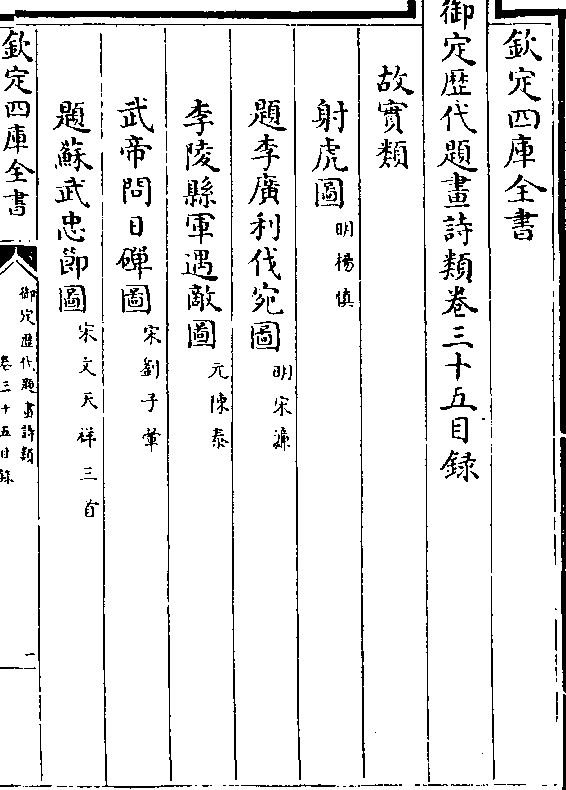 欽定四庫全書
御定歴代題畫詩類卷三十五目録
故實類
射虎圖 明楊慎
題李廣利伐宛圖 明宋濂
李陵縣軍遇敵圖 元陳泰
武帝問日磾圖 宋劉子翬
題蘇武忠節圖 宋文天祥三首
欽定四庫全書
御定歴代題畫詩類
卷三十五目録
一